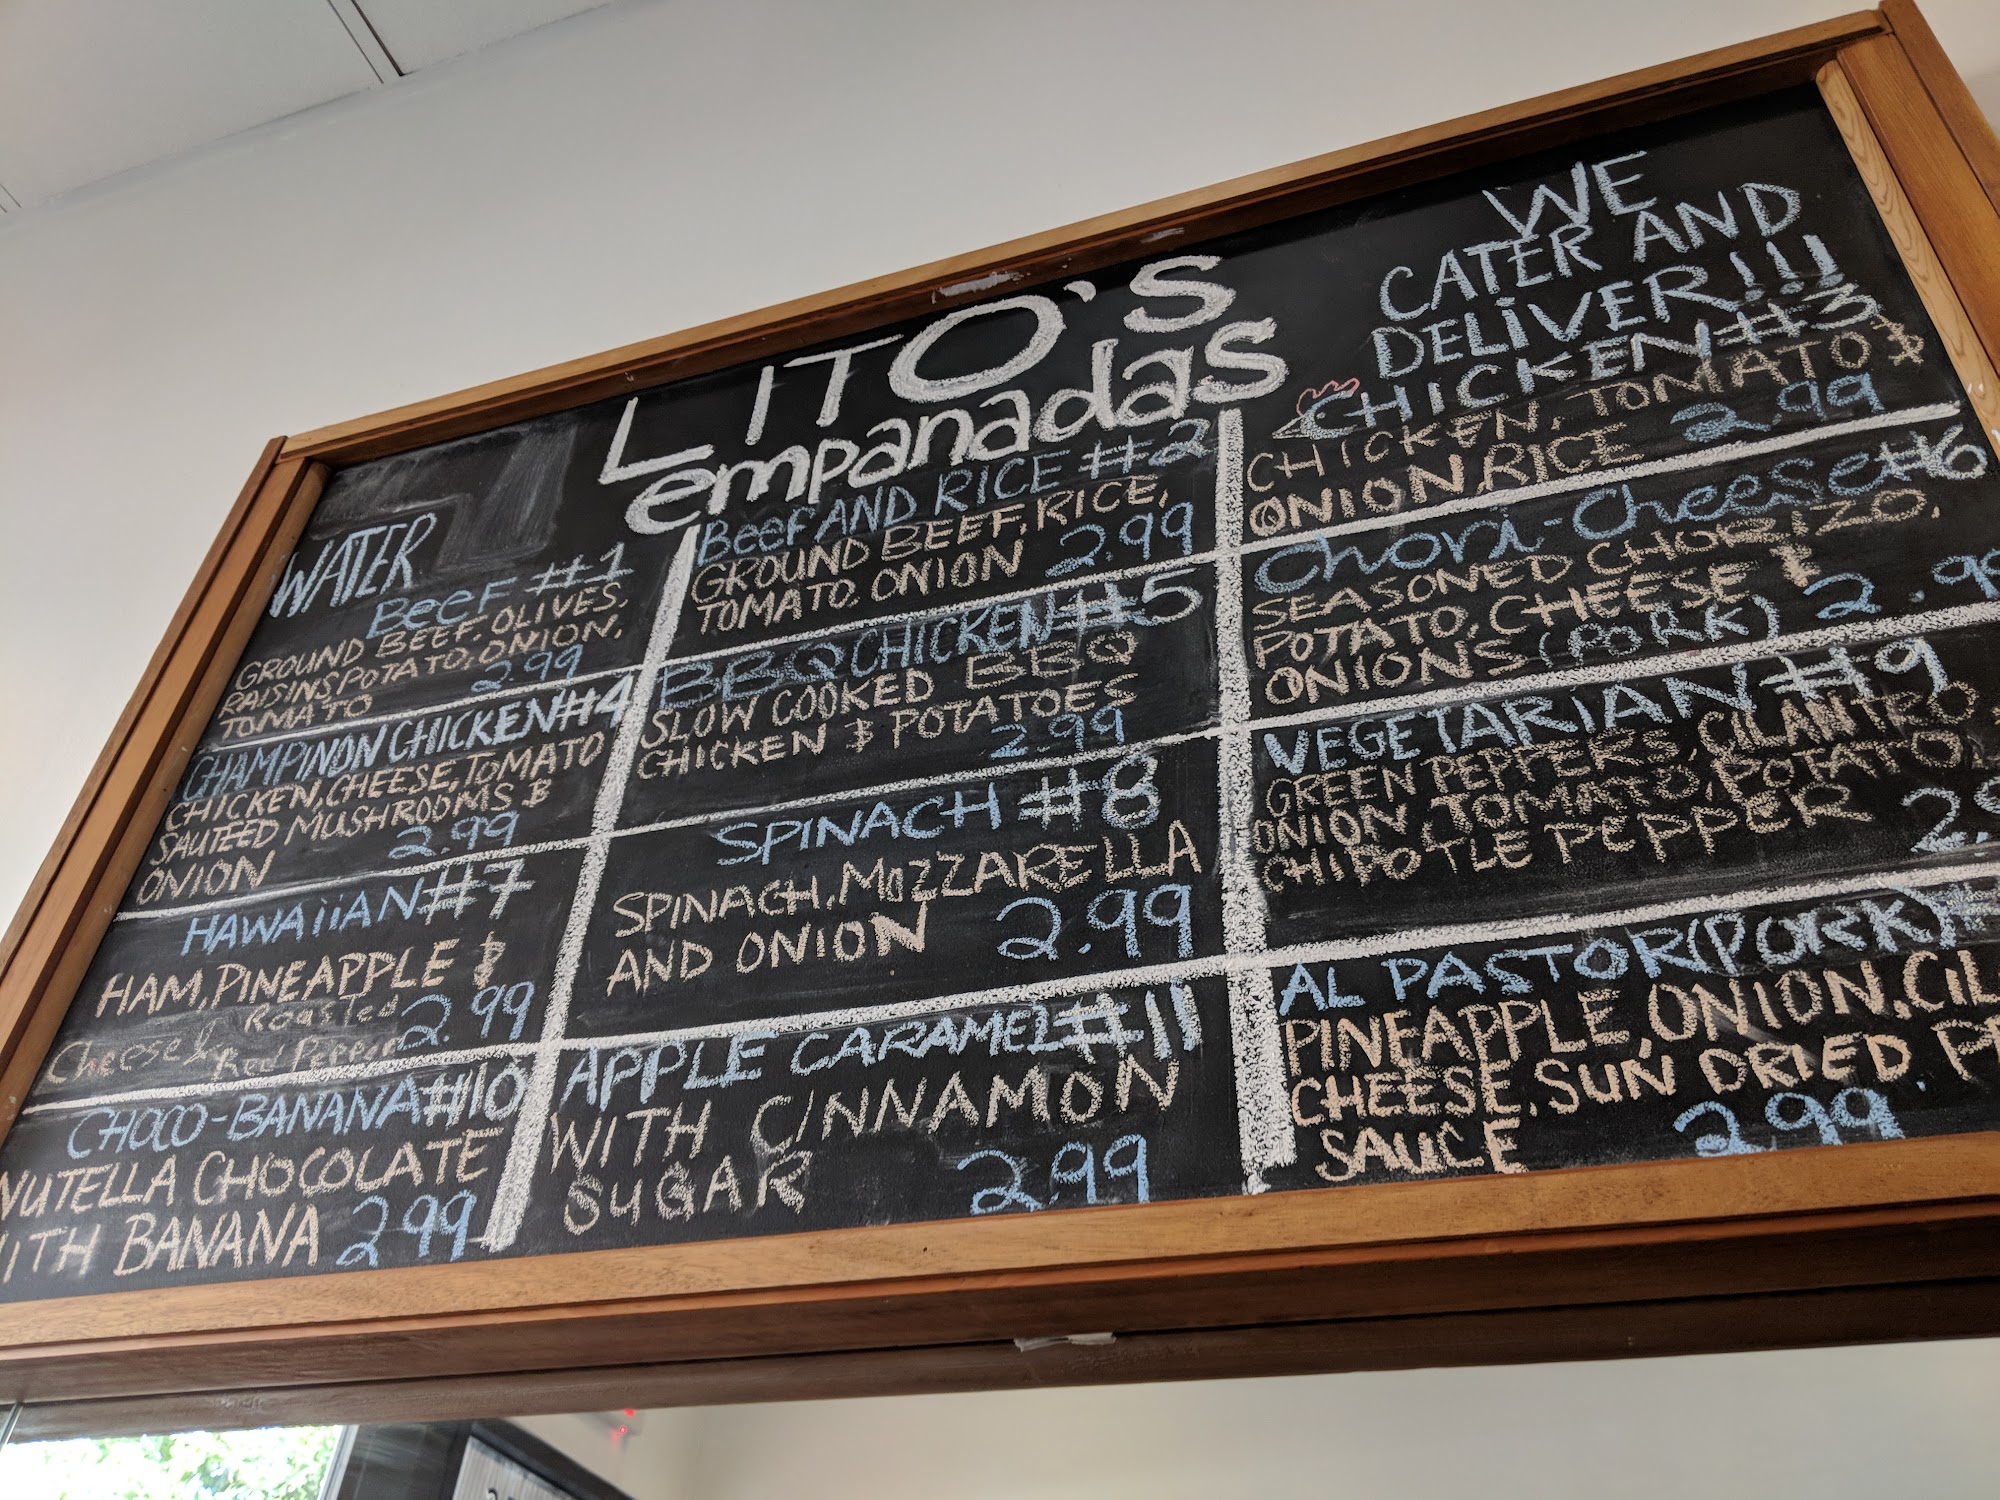 LITO'S
empanadas
WE
CATER AND
DELIVER!!!
WATER
BEEF #1
GROUND BEEF, OLIVES,
RAISINS, POTATO, ONION,
TOMATO 2.99
BEEF AND RICE #2
GROUND BEEF, RICE,
TOMATO, ONION 2.99
CHICKEN #3
CHICKEN, TOMATO &
ONION, RICE 2.99
CHAMPINON CHICKEN #4
CHICKEN, CHEESE, TOMATO
SAUTEED MUSHROOMS &
ONION 2.99
BBQ CHICKEN #5
SLOW COOKED BBQ
CHICKEN & POTATOES
2.99
Chori-Cheese #6
SEASONED CHORIZO,
POTATO, CHEESE &
ONIONS (PORK) 2.99
HAWAiiAN #7
HAM, PINEAPPLE &
Roasted 2.99
Cheese & Red Pepper
SPINACH #8
SPINACH, MOZZARELLA
AND ONION 2.99
VEGETARIAN #9
GREEN PEPPERS, CILANTRO
ONION, TOMATO, POTATO,
CHIPOTLE PEPPER 2.
CHOCO-BANANA #10
NUTELLA CHOCOLATE
WITH BANANA 2.99
APPLE CARAMEL #11
WITH CINNAMON
SUGAR 2.99
AL PASTOR (PORK) #
PINEAPPLE, ONION, CIL
CHEESE, SUN DRIED PE
SAUCE 2.99